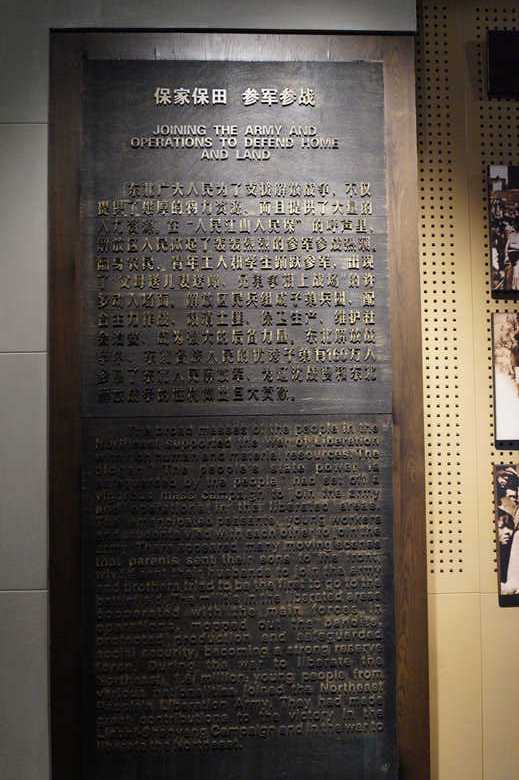 保家保田 参军参战
JOINING THE ARMY AND
OPERATIONS TO DEFEND HOME
AND LAND
东北广大人民为了支援解放战争，不仅
提供了雄厚的物力资源，而且提供了大量的
人力资源。在“人民江山人民保”的呼声里，
解放区人民掀起了轰轰烈烈的参军参战热潮，
农民、青年工人和学生踊跃参军，出现
了“父母送儿妻送郎，兄弟争相上战场”的许
多动人场面。解放区民兵组成子弟兵团，配
合主力作战，肃清土匪，保卫生产，维护社
会治安，成为强大的后备力量。东北解放战
争中，东北各族人民的优秀子弟有160万人
参加了东北人民解放军，为辽沈战役和东北
解放战争的胜利做出巨大贡献。
The broad masses of the people in the
Northeast supported the War of Liberation
with human and material resources. The
slogan "The people's state power is
safeguarded by the people" had set off a
vigorous mass campaign to join the army
and operations in the liberated areas.
The emancipated peasants, young workers
that parents sent their sons to the front,
and brothers tried to be the first to go to the
cooperated with the main forces in
operations, mopped out the bandits,
production and safeguarded
social security, becoming a strong reserve
force. During the war to liberate the
Northeast, 1.6 million young people from
various nationalities joined the Northeast
People's Liberation Army. They had made
great contributions to the victory in the
Liaoxi-Shenyang Campaign and in the war to
liberate the Northeast.